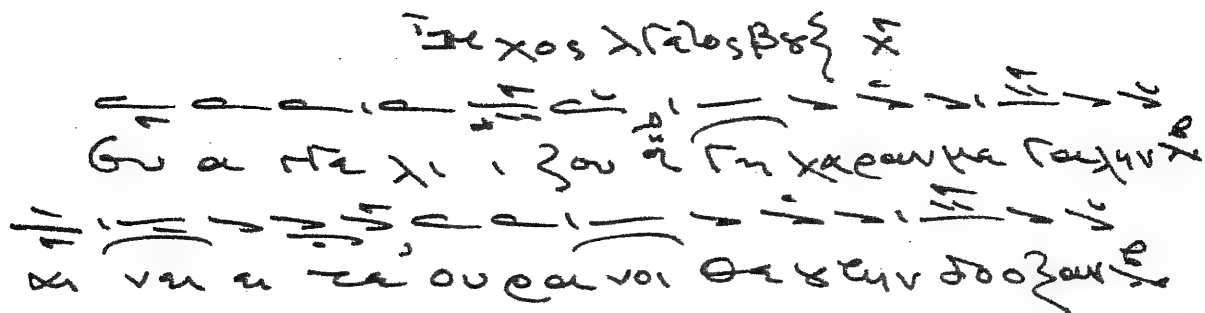 Ηχος
Ευ α γγε λι ι ζου γη χα ρα αν με γα λην
αι νει ει τε ου ρα νοι Θε ου την δο ο ξαν